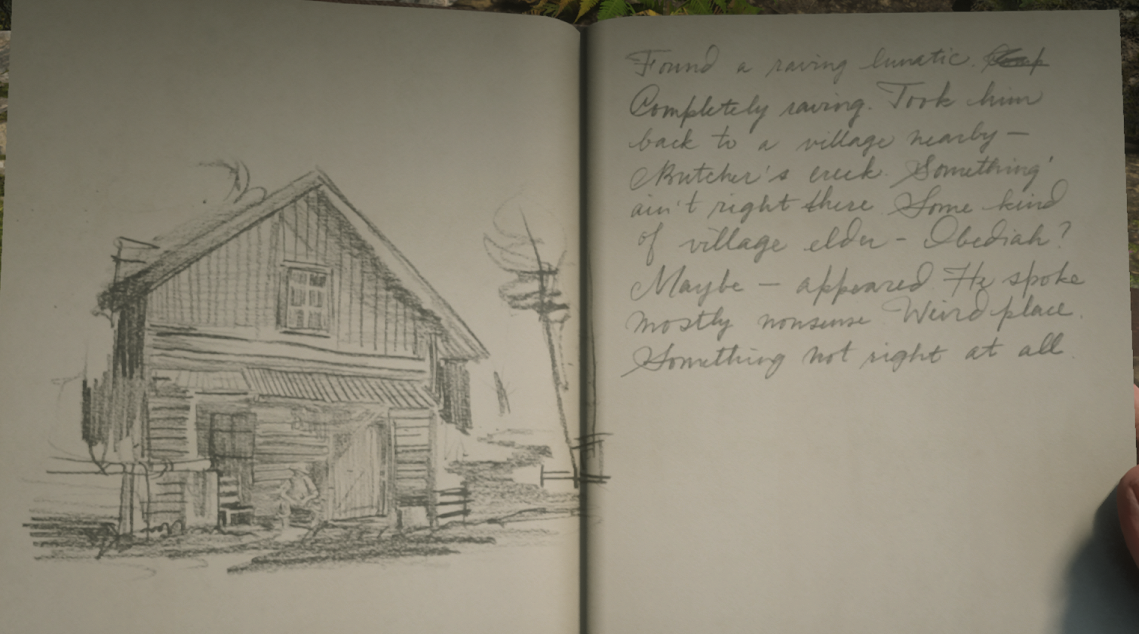 Found a raving lunatic.
Completely raving. Took him
back to a village nearby –
Butcher's creek. Something'
ain't right there. Some kind
of village elder – Obediah?
Maybe – appeared. He spoke
mostly nonsense. Weird place.
Something not right at all.